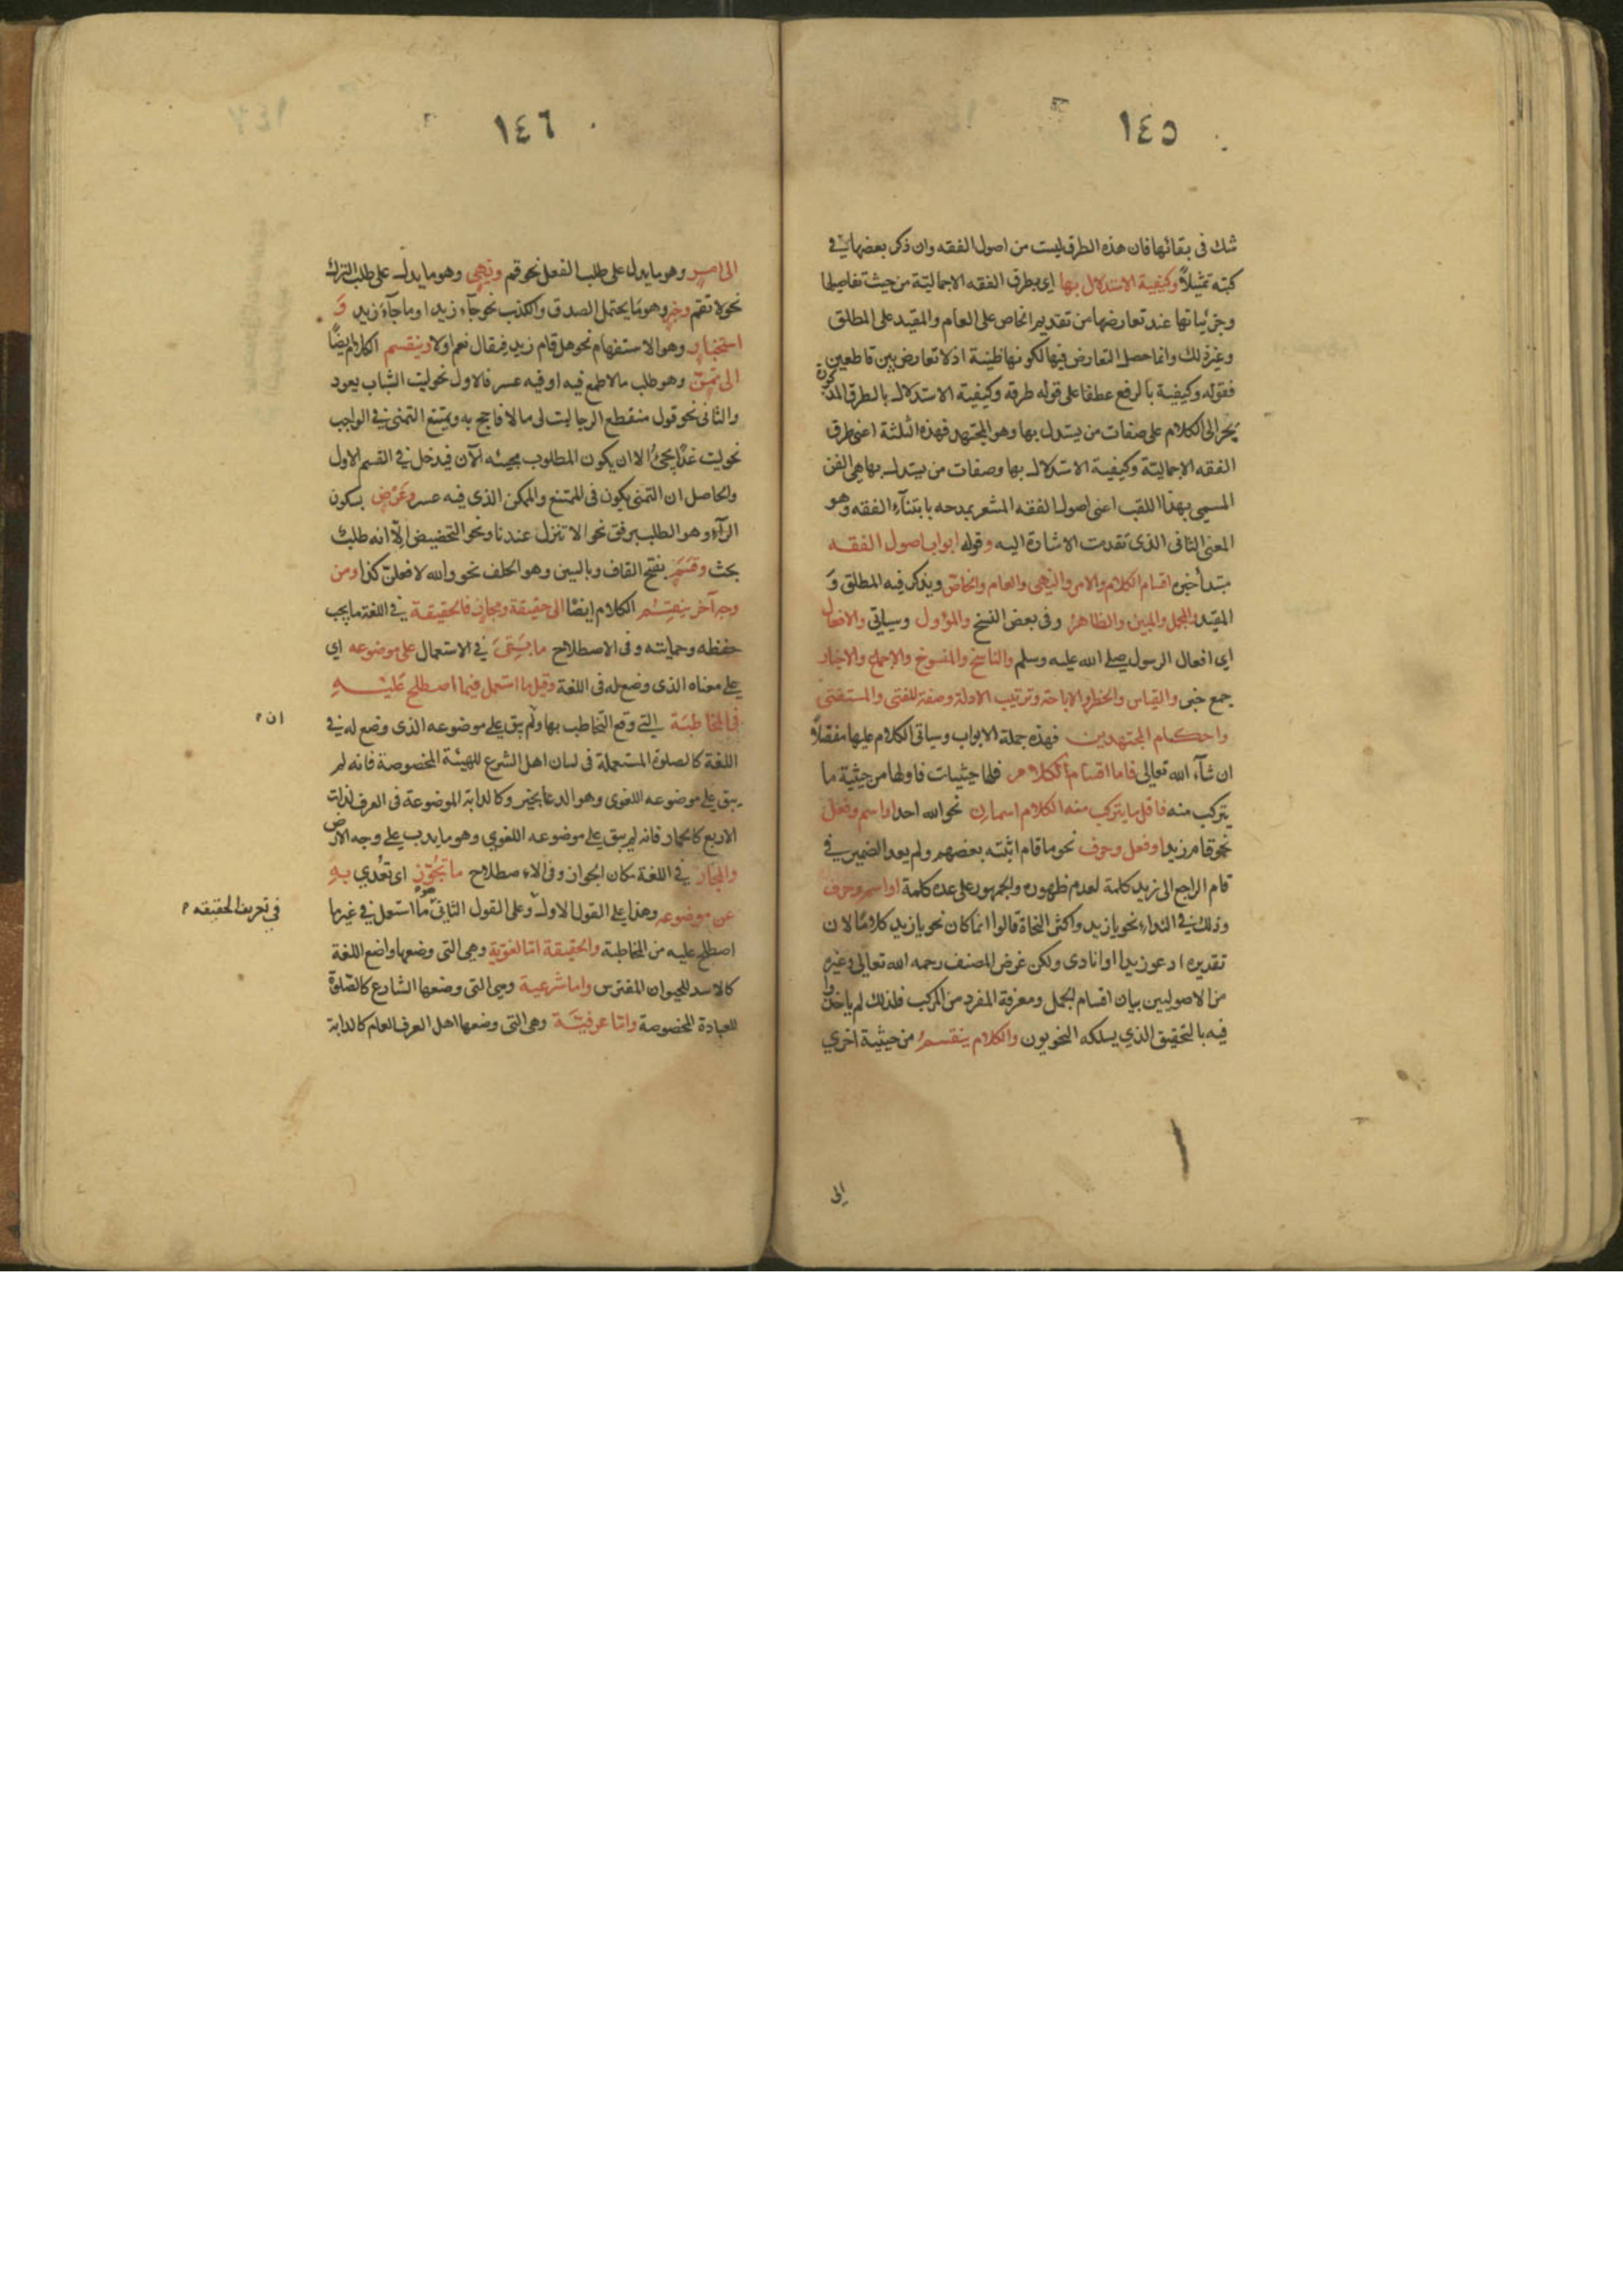 ١٤٥
شك فى بقائها فان هذه الطرق ليست من اصول الفقه وان ذكر بعضها فى
كتبه تمثيلاً وكيفية الاستدلال بها اى بطرق الفقه الاجمالية من حيث تفاصيلها
وجزئياتها عند تعارضها من تقديم الخاص على العام والمقيد على المطلق
وغير ذلك وانما حصل التعارض فيها لكونها ظنية اذ لا تعارض بين قاطعين
فقوله وكيفية بالرفع عطفا على قوله طرقه وكيفية الاستدلال بالطرق المذكورة
يجر الى الكلام على صفات من يستدل بها وهو المجتهد فهذه الثلثة اعنى طرق
الفقه الاجمالية وكيفية الاستدلال بها وصفات من يستدل بها هى الفن
المسمى بهذا اللقب اعنى اصول الفقه المشعر بمدحه بابتنآء الفقه وهو
المعنى الثانى الذى تقدمت الاشارة اليه وقوله ابواب اصول الفقه
مبتدأ خبره اقسام الكلام والامر والنهى والعام والخاص ويذكر فيه المطلق و
المقيد والمجمل والمبين والظاهر وفى بعض النسخ والمؤول وسياتى والافعال
اى افعال الرسول صلى الله عليه وسلم والناسخ والمنسوخ والاجماع والاخبار
جمع خبر والقياس والحظر والاباحة وترتيب الادلة وصفة المفتى والمستفتى
واحكام المجتهدين فهذه جملة الابواب وسياتى الكلام عليها مفصلاً
ان شآء الله تعالى فاما اقسام الكلام فلها حيثيات فاولها من حيثية ما
يتركب منه فاقل ما يتركب منه الكلام اسمان نحو الله احد او اسم وفعل
نحو قام زيد او فعل وحرف نحو ما قام اثبته بعضهم ولم يعد الضمير فى
قام الراجع الى زيد كلمة لعدم ظهوره والجمهور على عده كلمة او اسم وحرف
وذلك فى النداء نحو يا زيد واكثر النحاة قالوا انما كان نحو يا زيد كلاما لان
تقديره ادعو زيدا او انادى ولكن غرض المصنف رحمه الله تعالى وغيره
من الاصوليين بيان اقسام الجمل ومعرفة المفرد من المركب فلذلك لم ياخذوا
فيه بالتحقيق الذي يسلكه النحويون والكلام ينقسم من حيثية اخرى
الى
١٤٦
الى امر وهو ما يدل على طلب الفعل نحو قم ونهى وهو ما يدل على طلب الترك
نحو لا تقم وخبر وهو ما يحتمل الصدق والكذب نحو جآء زيد او ما جآء زيد و
استخبار وهو الاستفهام نحو هل قام زيد فيقال نعم اولا وينقسم الكلام ايضاً
الى تمن وهو طلب ما لا طمع فيه او فيه عسر فالاول نحو ليت الشباب يعود
والثانى نحو قول منقطع الرجا ليت لى مالا فاحج به ويمتنع التمنى فى الواجب
نحو ليت غدًا يجئُ الا ان يكون المطلوب مجيئه الآن فيدخل فى القسم الاول
والحاصل ان التمنى يكون فى الممتنع والممكن الذى فيه عسر وعَرْضٍ بسكون
الرآء وهو الطلب برفق نحو الا تنزل عندنا ونحو التحضيض الّا انه طلب
بحث وقَسَمٍ بفتح القاف وبالسين وهو الحلف نحو والله لافعلن كذا ومن
وجه آخر ينقسم الكلام ايضًا الى حقيقة ومجاز فالحقيقة فى اللغة ما يجب
حفظه وحمايته وفى الاصطلاح ما بقى فى الاستعمال على موضوعه اى
على معناه الذى وضع له فى اللغة وقيل ما استعمل فيما اصطلح عليه
فى المخاطبة التى وقع التخاطب بها ولم يبق على موضوعه الذى وضع له فى
ان
اللغة كالصلوة المستعملة فى لسان اهل الشرع للهيئة المخصوصة فانه لم
يبق على موضوعه اللغوى وهو الدعا بخير وكالدابة الموضوعة فى العرف لذات
الاربع كالحمار فانه لم يبق على موضوعه اللغوي وهو ما يدب على وجه الارض
والمجاز فى اللغة مكان الجواز وفى الاصطلاح ما تُجُوّز اى تُعُدّي به
عن موضوعه وهذا على القول الاول وعلى القول الثانى هو ما استعمل فى غير ما
فى تعريف الحقيقه
اصطلح عليه من المخاطبة والحقيقة اما لغوية وهى التى وضعها واضع اللغة
كالاسد للحيوان المفترس واما شرعية وهى التى وضعها الشارع كالصّلوة
للعبادة المخصوصة واما عرفيَّة وهى التى وضعها اهل العرف العام كالدابة